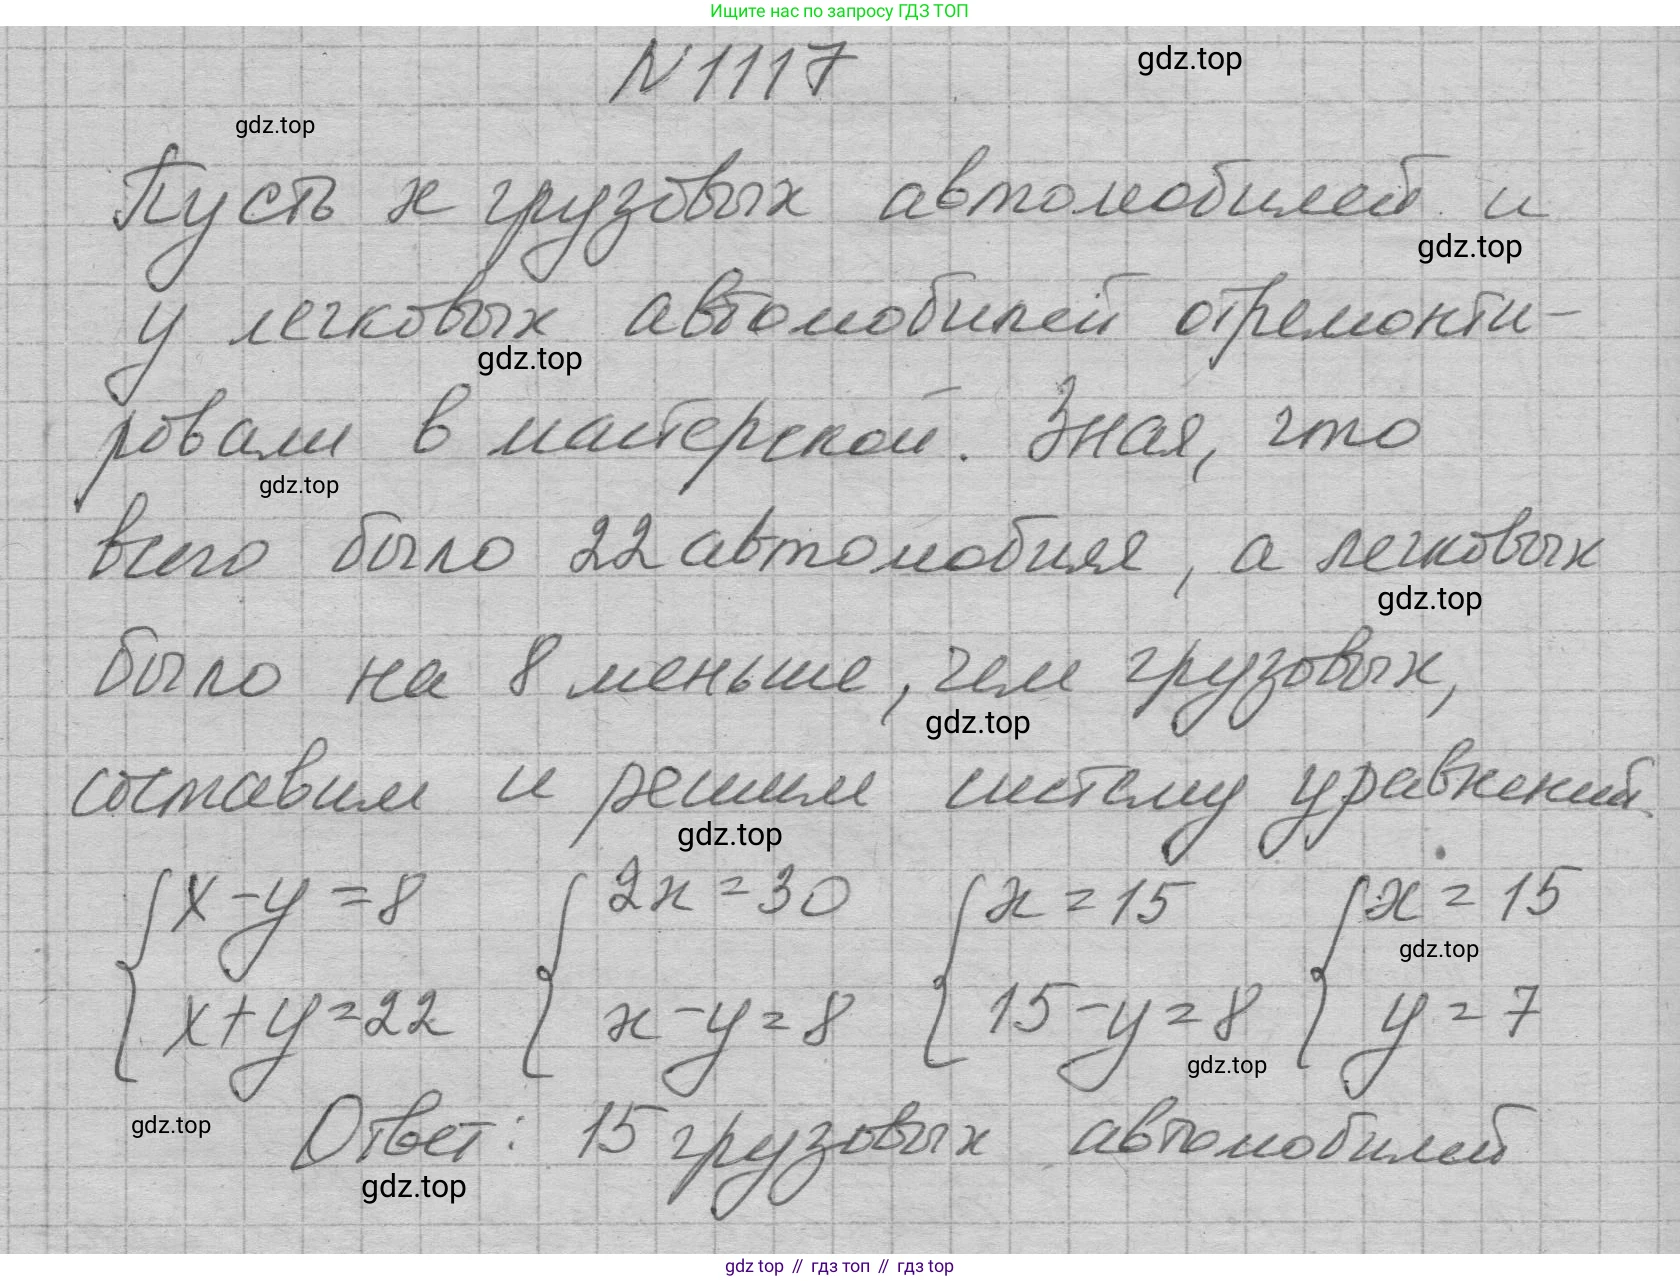 Ищите нас по запросу ГДЗ ТОП
N 1117
gdz.top
gdz.top
Пусть x грузовых автомобилей и
gdz.top
y легковых автомобилей отремонти-
gdz.top
ровали в мастерской. Зная, что
gdz.top
всего было 22 автомобиля, а легковых
gdz.top
было на 8 меньше, чем грузовых,
gdz.top
составим и решим систему уравнений
gdz.top
{ x - y = 8 { 2x = 30 { x = 15 { x = 15
gdz.top
x + y = 22 x - y = 8 15 - y = 8 y = 7
gdz.top
gdz.top
Ответ: 15 грузовых автомобилей
gdz.top
gdz top // гдз топ // гдз top